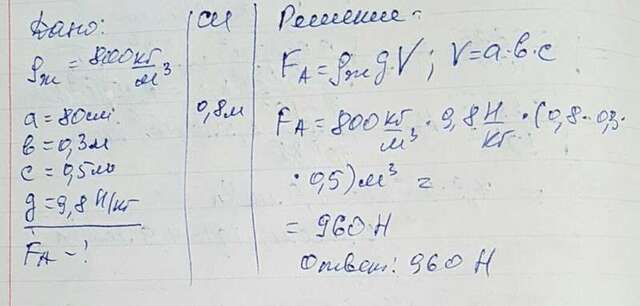 Дано:
ρж = 800 кг/м³
a = 80 см
в = 0,3 м
c = 0,5 м
g = 9,8 Н/кг
FA - ?
СИ
0,8 м
Решение.
FA = ρж g V ; V = a · в · c
FA = 800 кг/м³ · 9,8 Н/кг · (0,8 · 0,3 ·
· 0,5) м³ =
= 960 Н
Ответ: 960 Н